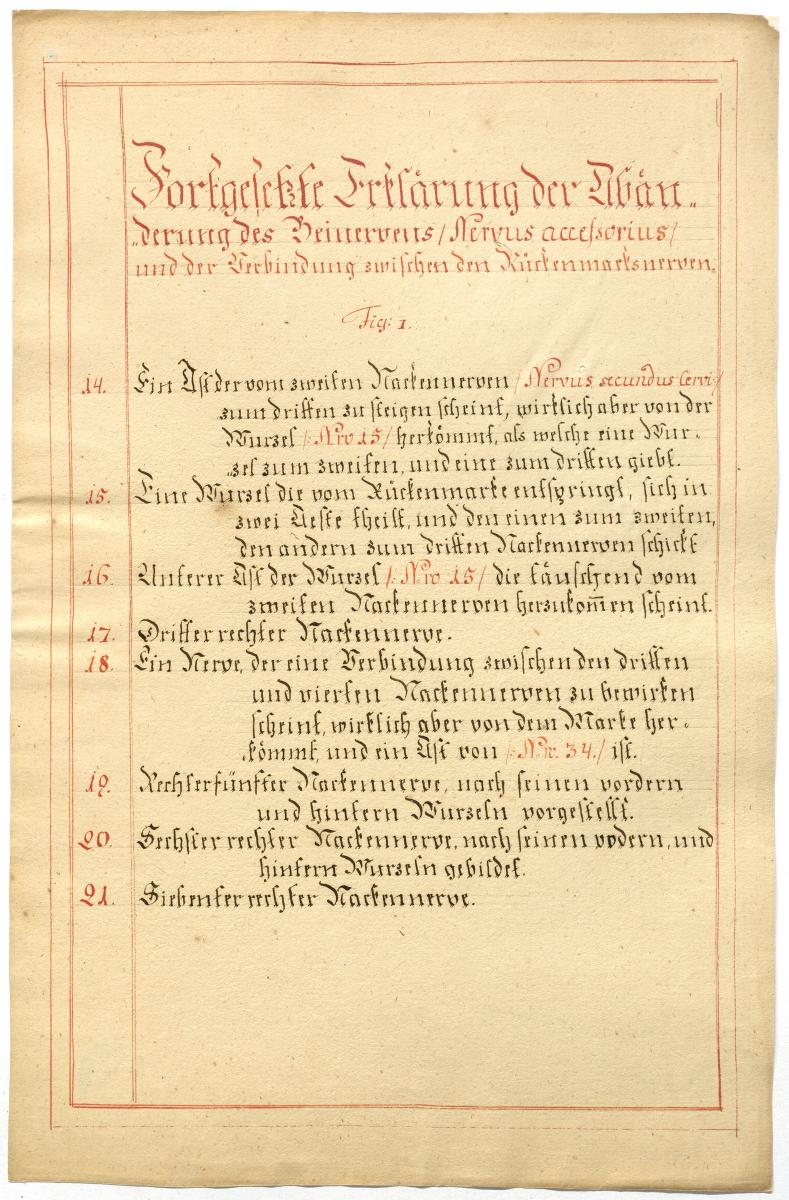 Fortgesetzte Erklärung der Abän„
„derung des Beinervens /Nervus accessorius/
und der Verbindung zwischen den Rückenmarksnerven.
Fig: 1.
14. Ein Ast der vom zweiten Nackennerven /Nervus secundus Cervi:/
zum dritten zu steigen scheint, wirklich aber von der
Wurzel /: Nro 15/ herkömmt, als welche eine Wur„
„zel zum zweiten, und eine zum dritten giebt.
15. Eine Wurzel die vom Rückenmarke entspringt, sich in
zwei Aeste theilt, und den einen zum zweiten,
den andern zum dritten Nackennerven schickt
16. Unterer Ast der Wurzel /: Nro 15/ die täuschend vom
zweiten Nackennerven herzukom̅en scheint.
17. Dritter rechter Nackennerve.
18. Ein Nerve, der eine Verbindung zwischen den dritten
und vierten Nackennerven zu bewirken
scheint, wirklich aber von dem Marke her„
„kömmt, und ein Ast von /: Nro. 34./ ist.
19. Rechter fünfter Nackennerve, nach seinen vordern
und hintern Wurzeln vorgestellt.
20. Sechster rechter Nackennerve, nach seinen vodern, und
hintern Wurzeln gebildet.
21. Siebenter rechter Nackennerve.